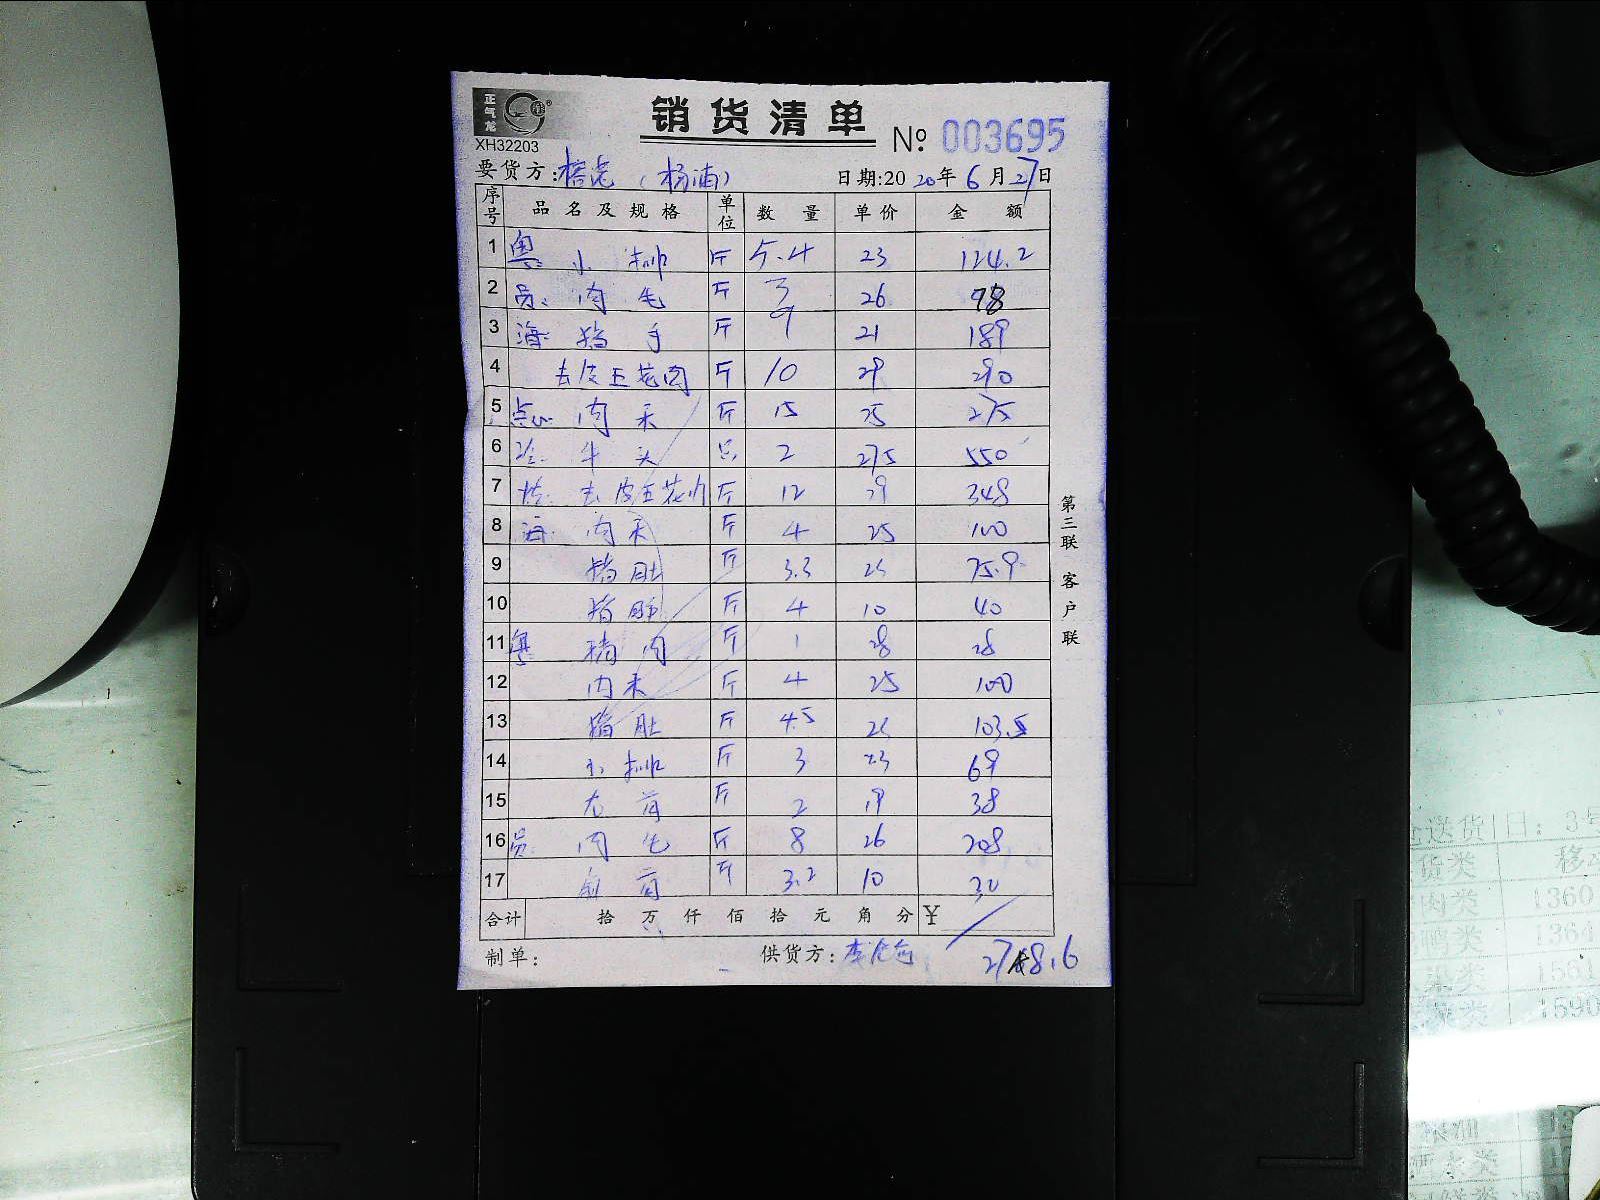 正气龙
销货清单
XH32203
№ 003695
要货方: (杨浦) 日期:2020年6月27日
序号 品名及规格 单位 数量 单价 金额
1 粤: 小排 斤 5.4 23 124.2
2 员: 肉毛 斤 3 26 78
3 海: 猪手 斤 9 21 189
4 去皮五花肉 斤 10 29 290
5 点心 肉末 斤 15 25 275
6 冷: 牛头 只 2 275 550
7 去皮五花肉 斤 12 29 348
8 海: 肉末 斤 4 25 100
9 猪肚 斤 3.3 23 75.9
10 猪肺 斤 4 10 40
11 粤: 猪肉 斤 1 28 28
12 肉末 斤 4 25 100
13 猪肚 斤 4.5 23 103.5
14 小排 斤 3 23 69
15 斤 2 19 38
16 员: 肉毛 斤 8 26 208
17 斤 3.2 10 32
合计 拾万仟佰拾元角分 ¥
制单: 供货方: 8.6
第三联 客户联
送货 日: 3号
货类
肉类 1360
鸭类 1364
1561
1590